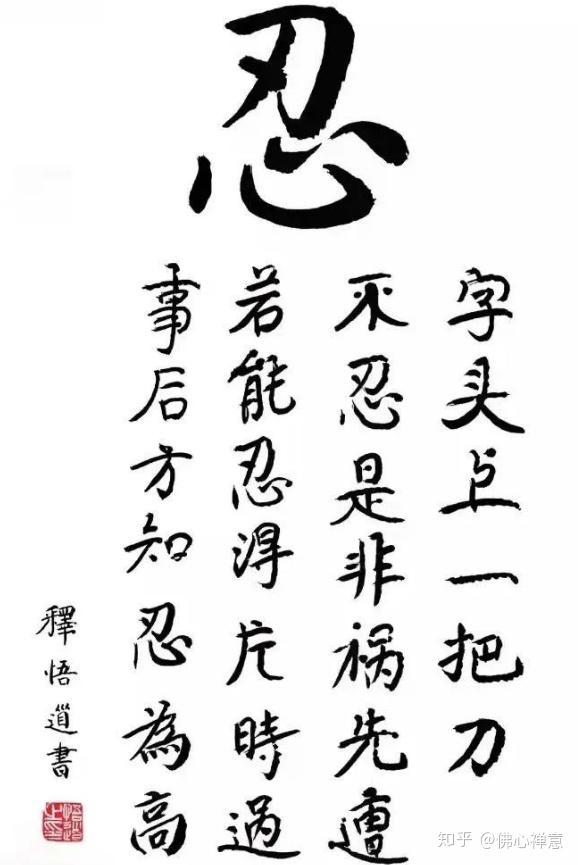 忍
字头上一把刀
不忍是非祸先遭
若能忍得片時過
事后方知忍為高
釋悟道書
知乎 @佛心禅意